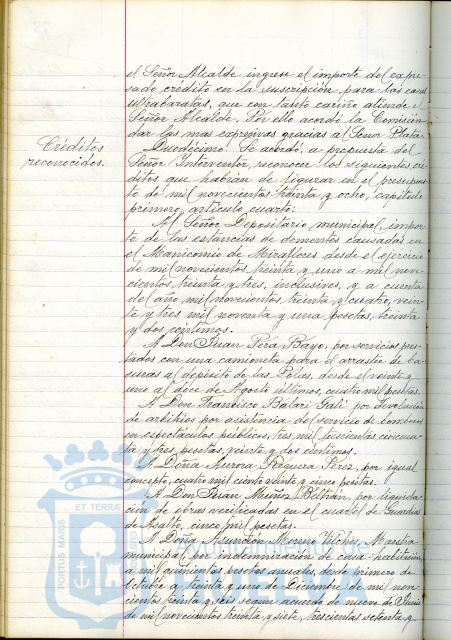 el Señor Alcalde ingrese el importe del expre-
sado crédito en la suscripción para las casas
ultrabaratas, que con tanto cariño atiende el
Señor Alcalde. Por ello acordó la Comisión
dar las mas expresivas gracias al Señor Plata
Créditos
reconocidos.
Duodécimo: Se acordó, a propuesta del
Señor Interventor, reconocer los siguientes cré-
ditos que habrán de figurar en el presupues-
to de mil novecientos treinta y ocho, capítulo
primero, artículo cuarto:
Al Señor Depositario municipal, impor-
te de las estancias de dementes causadas en
el Manicomio de Miraflores desde el ejercicio
de mil novecientos treinta y uno a mil nove-
cientos treinta y tres, inclusives, y a cuenta
del año mil novecientos treinta y cuatro, vein-
te y tres mil noventa y una pesetas, treinta
y dos céntimos.
A Don Juan Pera Bayo, por servicios pres-
tados con una camioneta para el arrastre de ba-
suras al depósito de las Pólas, desde el veinte y
uno al doce de Agosto últimos, cuatro mil pesetas.
A Don Francisco Balari Galí por devolución
de arbitrios por asistencia del servicio de bomberos
en espectáculos públicos, tres mil seiscientas cincuen-
ta y tres pesetas, veinte y dos céntimos.
A Doña Aurora Reguera Pérez, por igual
concepto, cuatro mil ciento veinte y cinco pesetas.
A Don Juan Muñoz Beltrán, por liquida-
ción de obras verificadas en el cuartel de Guardias
de Asalto, cinco mil pesetas.
A Doña Asunción Moreno Vilches, Maestra
municipal, por indemnización de casa-habitación,
a mil quinientas pesetas anuales, desde primero de
Octubre a treinta y uno de Diciembre de mil nove-
cientos treinta y seis según acuerdo de nueve de Junio
de mil novecientos treinta y siete, trescientas setenta y
PORTUS MARIS
ET TERRA